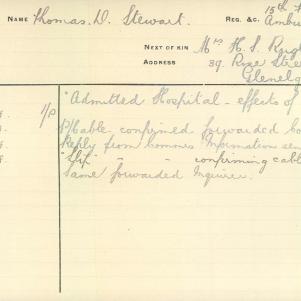 NAME Thomas. D. Stewart. REG. &C. 15th
NEXT OF KIN Mrs H. S.
ADDRESS 39 Rose
Glenelg
1/P "Admitted Hospital - effects of
P/Cable confined forwarded
Reply from Commes Information
" " confirming cabl
Same forwarded Inquirer.